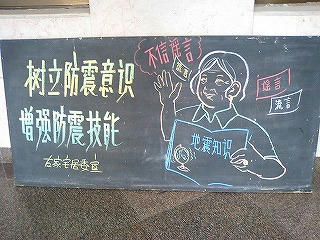 树立防震意识
增强防震技能
左家宅居委宣
不信谣言
谣言
谣言
流言
地震知识